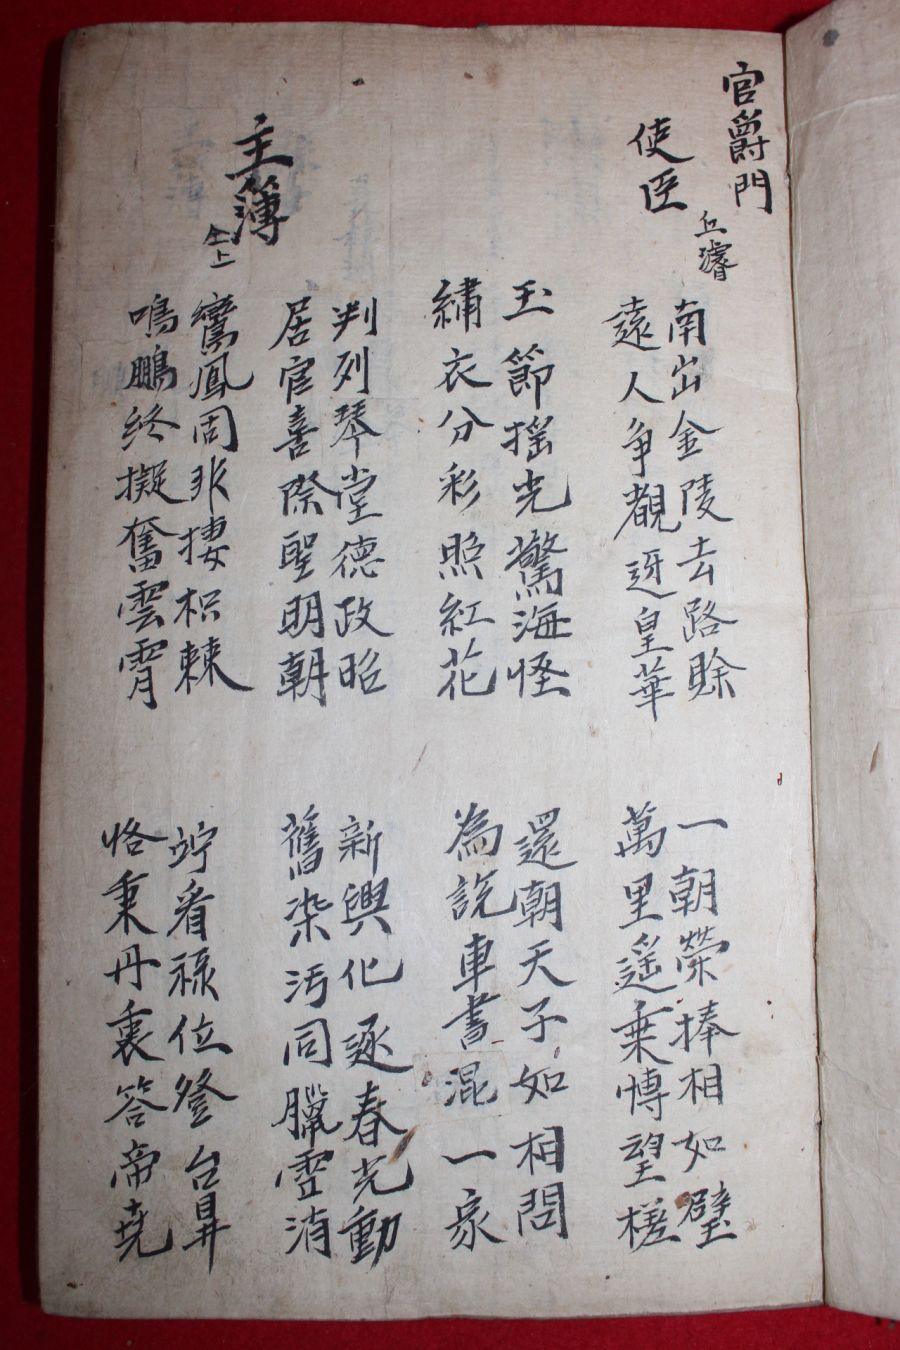 官爵門
使臣
丘濬
南出金陵去路賖
遠人争覩迓皇華
一朝榮捧相如璧
萬里遥乗博望槎
玉節搖光驚海怪
繡衣分彩照紅花
還朝天子如相問
為説車書混一家
主簿
仝上
判列琴堂德政昭
居官喜際聖明朝
新興化逐春光動
舊染污同臘雪消
鸞鳳固非捿枳棘
鳴鵬終擬奮雲霄
竚看祿位登台鼎
恪秉丹衷答帝堯